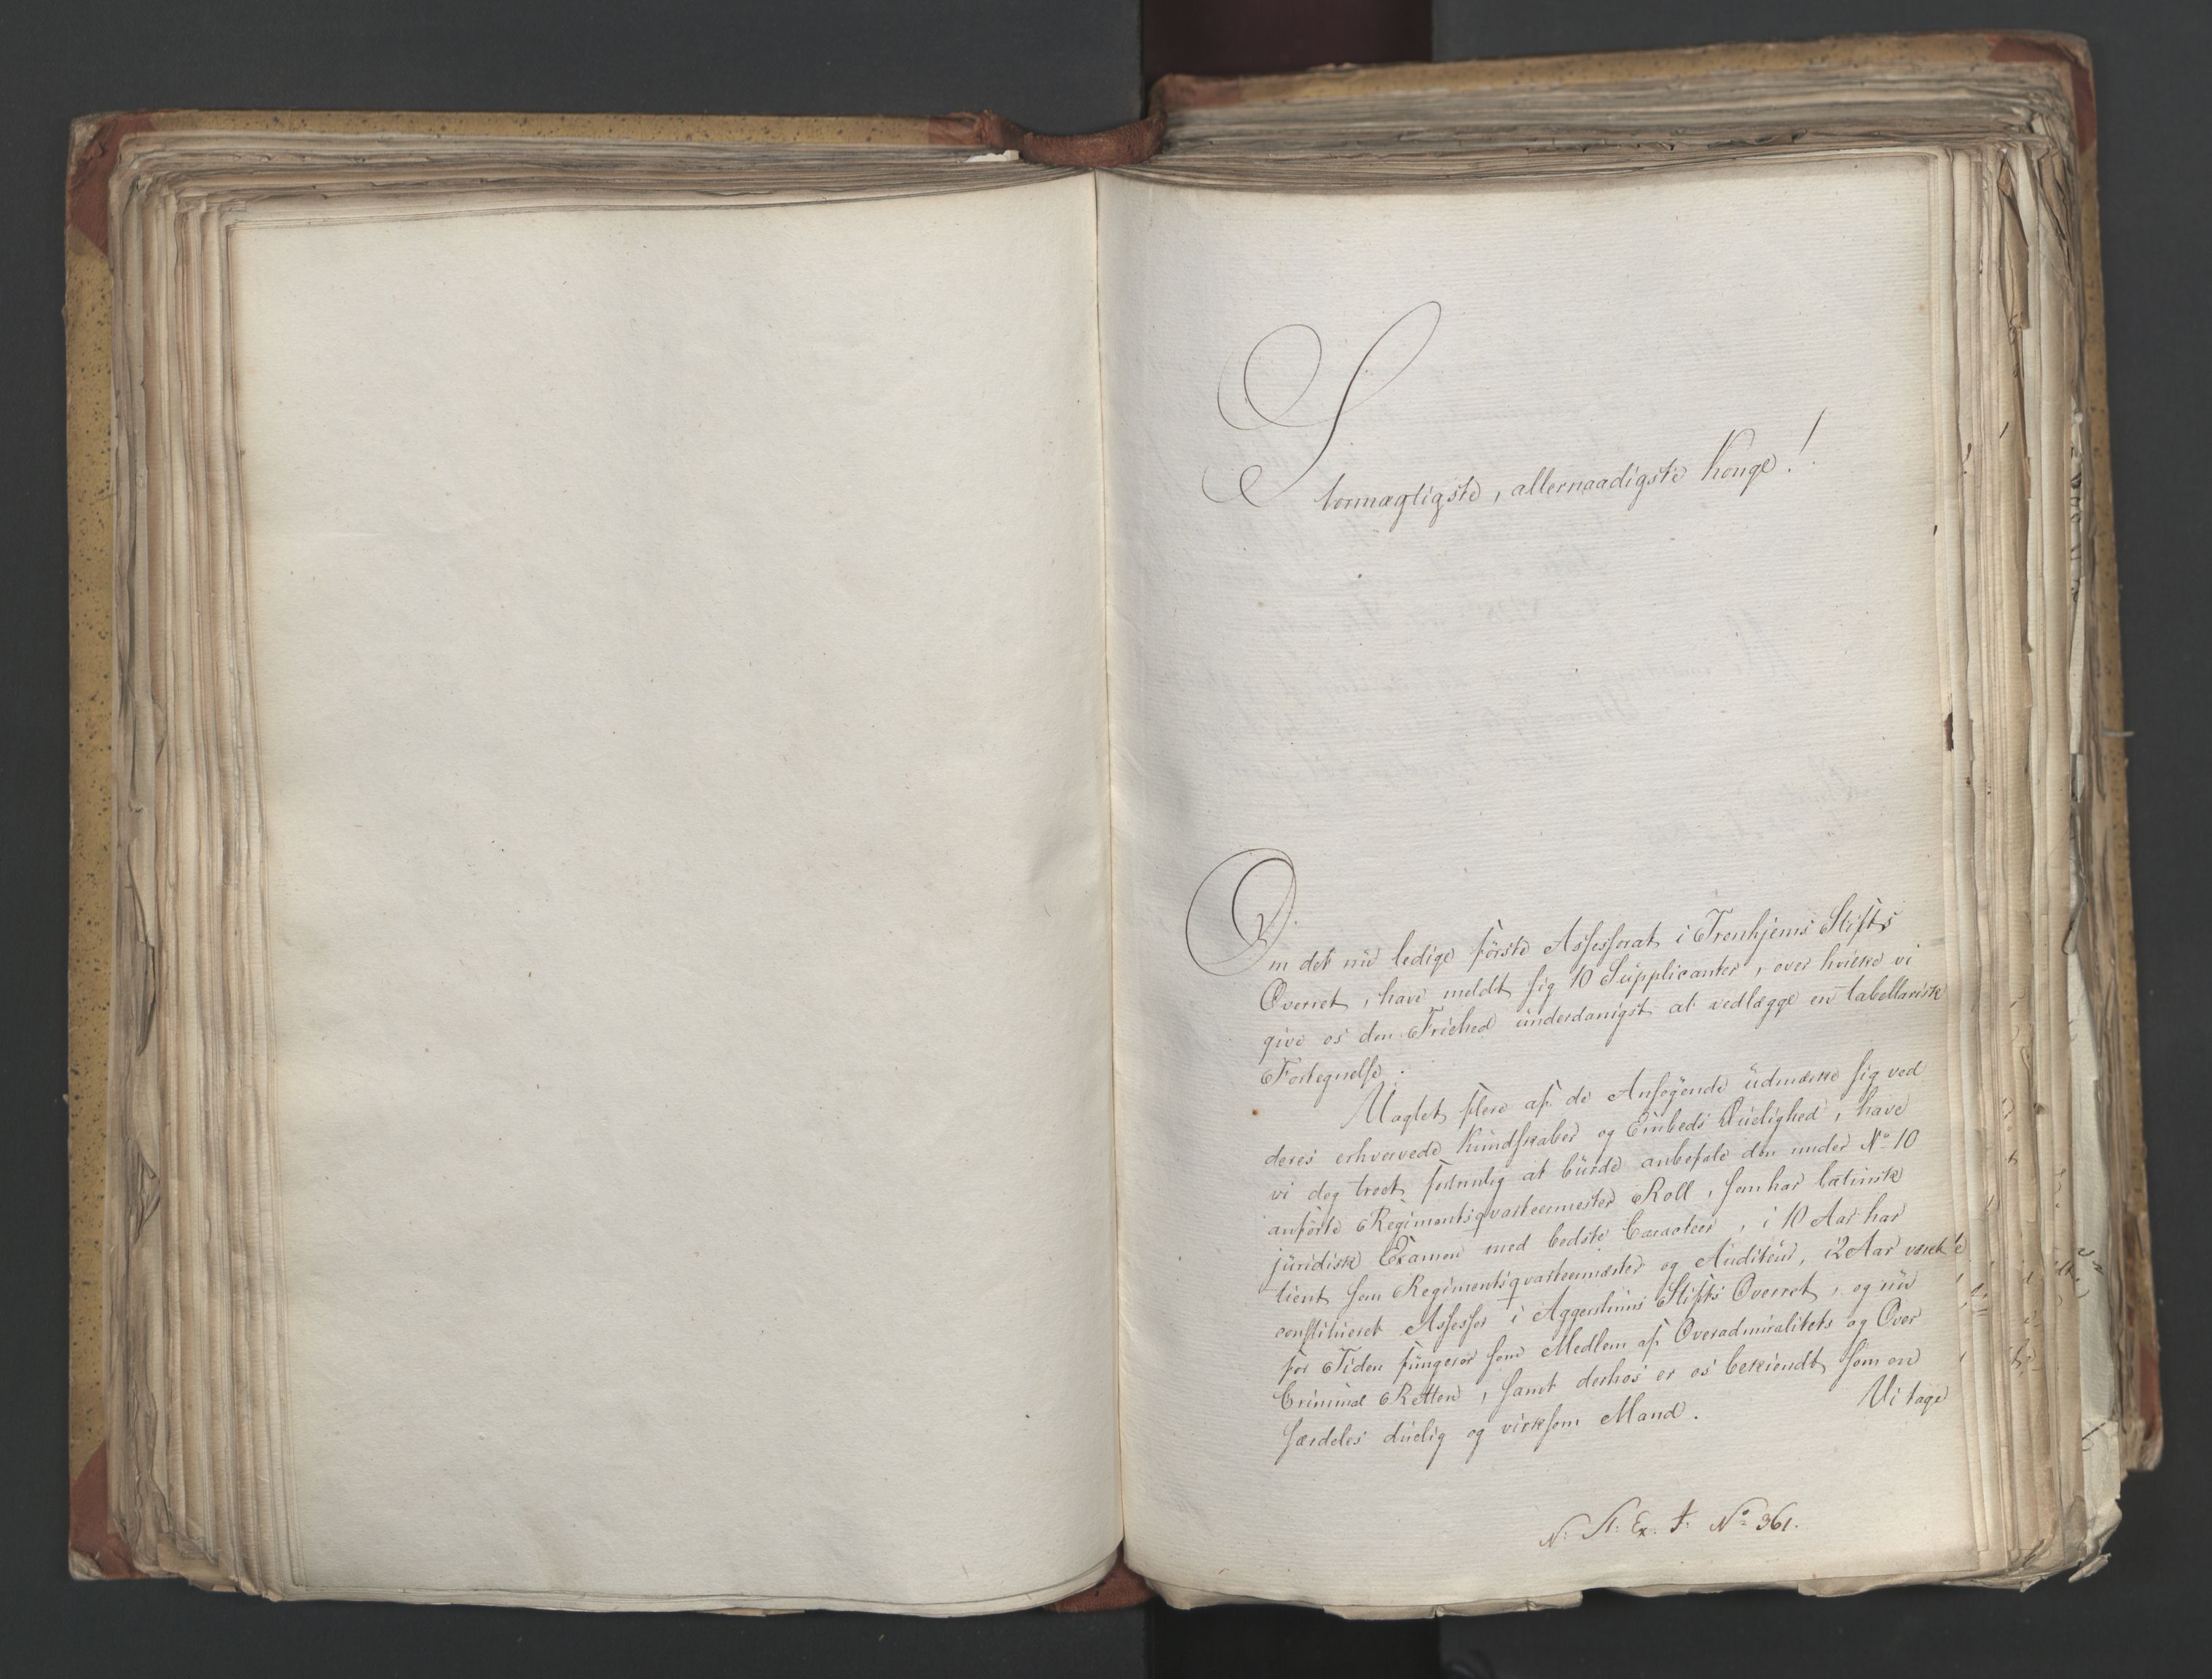 Stormægtigste, allernaadigste Konge!
Om det nu ledige første Assessorat i Tronhjems Stifts
Overret, have meldt sig 10 Supplicanter, over hvilke vi
give os den Friehed underdanigst at vedlægge en tabellarisk
Fortegnelse.
Uagtet flere af de Ansøgende udmærke sig ved
deres erhvervede Kundskaber og Embeds Duelighed, have
vi dog troet fortrinlig at burde anbefale den under No 10
anførte Regimentsqvarteermester Roll, som har latinsk
juridisk Examen med bedste Caracteer, i 10 Aar har
tient som Regimentsqvarteermester og Auditeur, i 2 Aar været
constitueret Assessor i Aggershuus Stifts Overret, og nu
for Tiden fungerer som Medlem af Overadmiralitets og Over
Criminal Retten, samt derhos er os bekiendt som en
særdeles duelig og virksom Mand.
Vi tage
N: St: Ex. J: No 361.